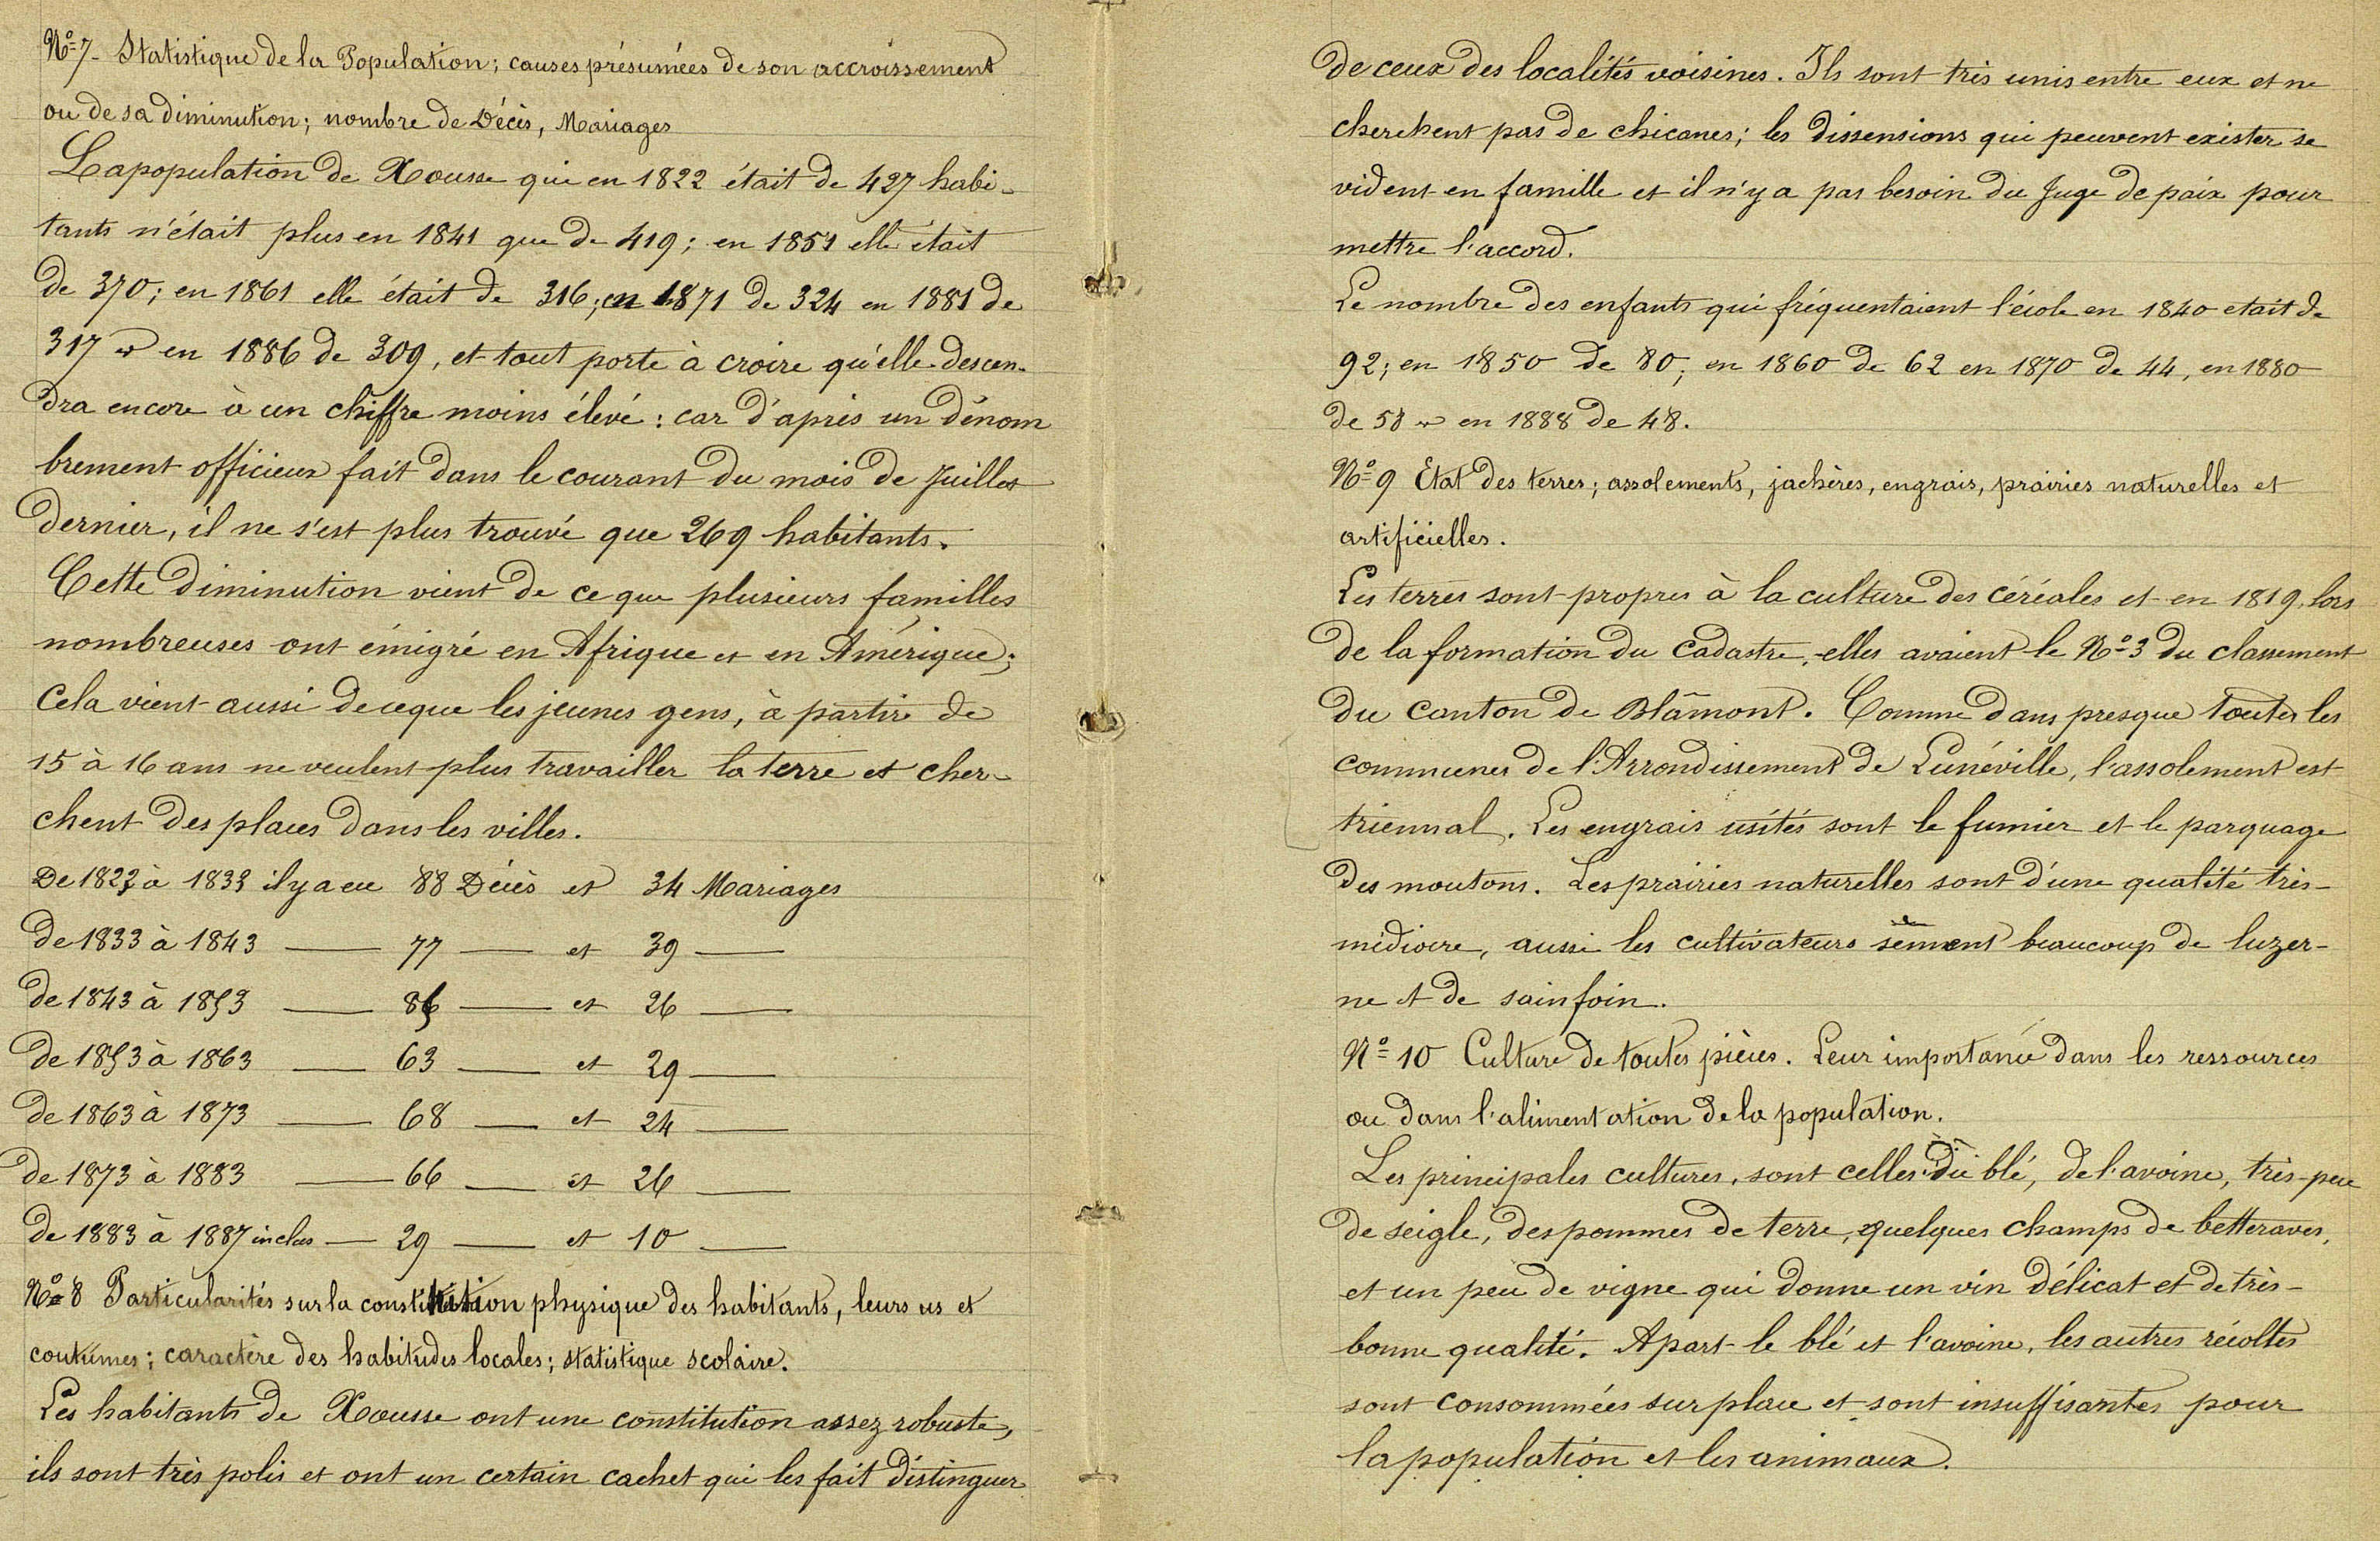 Nº 7 - Statistique de la Population; causes présumées de son accroissement
ou de sa diminution; nombre de Décès, Mariages
La population de Xousse qui en 1822 était de 427 habi-
tants n'était plus en 1841 que de 419; en 1851 elle était
de 370; en 1861 elle était de 316; en 1871 de 324 en 1881 de
317 et en 1886 de 309, et tout porte à croire qu'elle descen-
dra encore à un chiffre moins élevé: car d'après un dénom
brement officieux fait dans le courant du mois de Juillet
dernier, il ne s'est plus trouvé que 269 habitants.
Cette diminution vient de ce que plusieurs familles
nombreuses ont émigré en Afrique et en Amérique;
Cela vient aussi de ce que les jeunes gens, à partir de
15 à 16 ans ne veulent plus travailler la terre et cher-
chent des places dans les villes.
De 1823 à 1833 il y a eu 88 Décès et 34 Mariages
de 1833 à 1843 — 77 — et 39 —
de 1843 à 1853 — — et 26 —
de 1853 à 1863 — 63 — et 29 —
de 1863 à 1873 — 68 — et 24 —
de 1873 à 1883 — 66 — et 26 —
de 1883 à 1887 inclus — 29 — et 10 —
Nº 8 Particularités sur la constitution physique des habitants, leurs us et
coutumes; caractère des habitudes locales; statistique scolaire.
Les habitants de Xousse ont une constitution assez robuste,
ils sont très polis et ont un certain cachet qui les fait distinguer
de ceux des localités voisines. Ils sont très unis entre eux et ne
cherchent pas de chicanes; les dissensions qui peuvent exister se
vident en famille et il n'y a pas besoin du Juge de paix pour
mettre l'accord.
Le nombre des enfants qui fréquentaient l'école en 1840 etait de
92; en 1850 de 80; en 1860 de 62 en 1870 de 44, en 1880
de 58 et en 1888 de 48.
Nº 9 Etat des terres; assolements, jachères, engrais, prairies naturelles et
artificielles.
Les terres sont propres à la culture des céréales et en 1819, lors
de la formation du cadastre, elles avaient le Nº 3 du classement
du canton de Blâmont. Comme dans presque toutes les
communes de l'Arrondissement de Lunéville, l'assolement est
triennal. Les engrais usités sont le fumier et le parquage
des moutons. Les prairies naturelles sont d'une qualité très-
médiocre, aussi les cultivateurs sèment beaucoup de luzer-
ne et de sainfoin.
Nº 10 Culture de toutes pièces. Leur importance dans les ressources
ou dans l'alimentation de la population.
Les principales cultures, sont celles du blé, de l'avoine, très-peu
de seigle, des pommes de terre, quelques champs de betteraves,
et un peu de vigne qui donne un vin délicat et de très-
bonne qualité. Apart le blé et l'avoine, les autres récoltes
sont consommées sur place et sont insuffisantes pour
la population et les animaux.